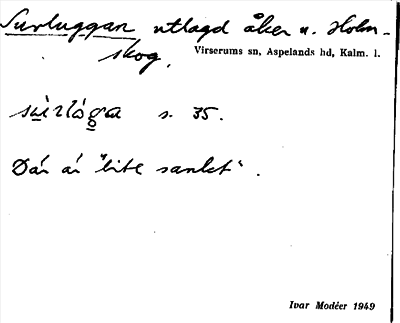 Surluggan utlagd åker u. Holm-
skog.
Virserums sn, Aspelands hd, Kalm. l.
s. 35.
Där är "lite sankt".
Ivar Modéer 1949